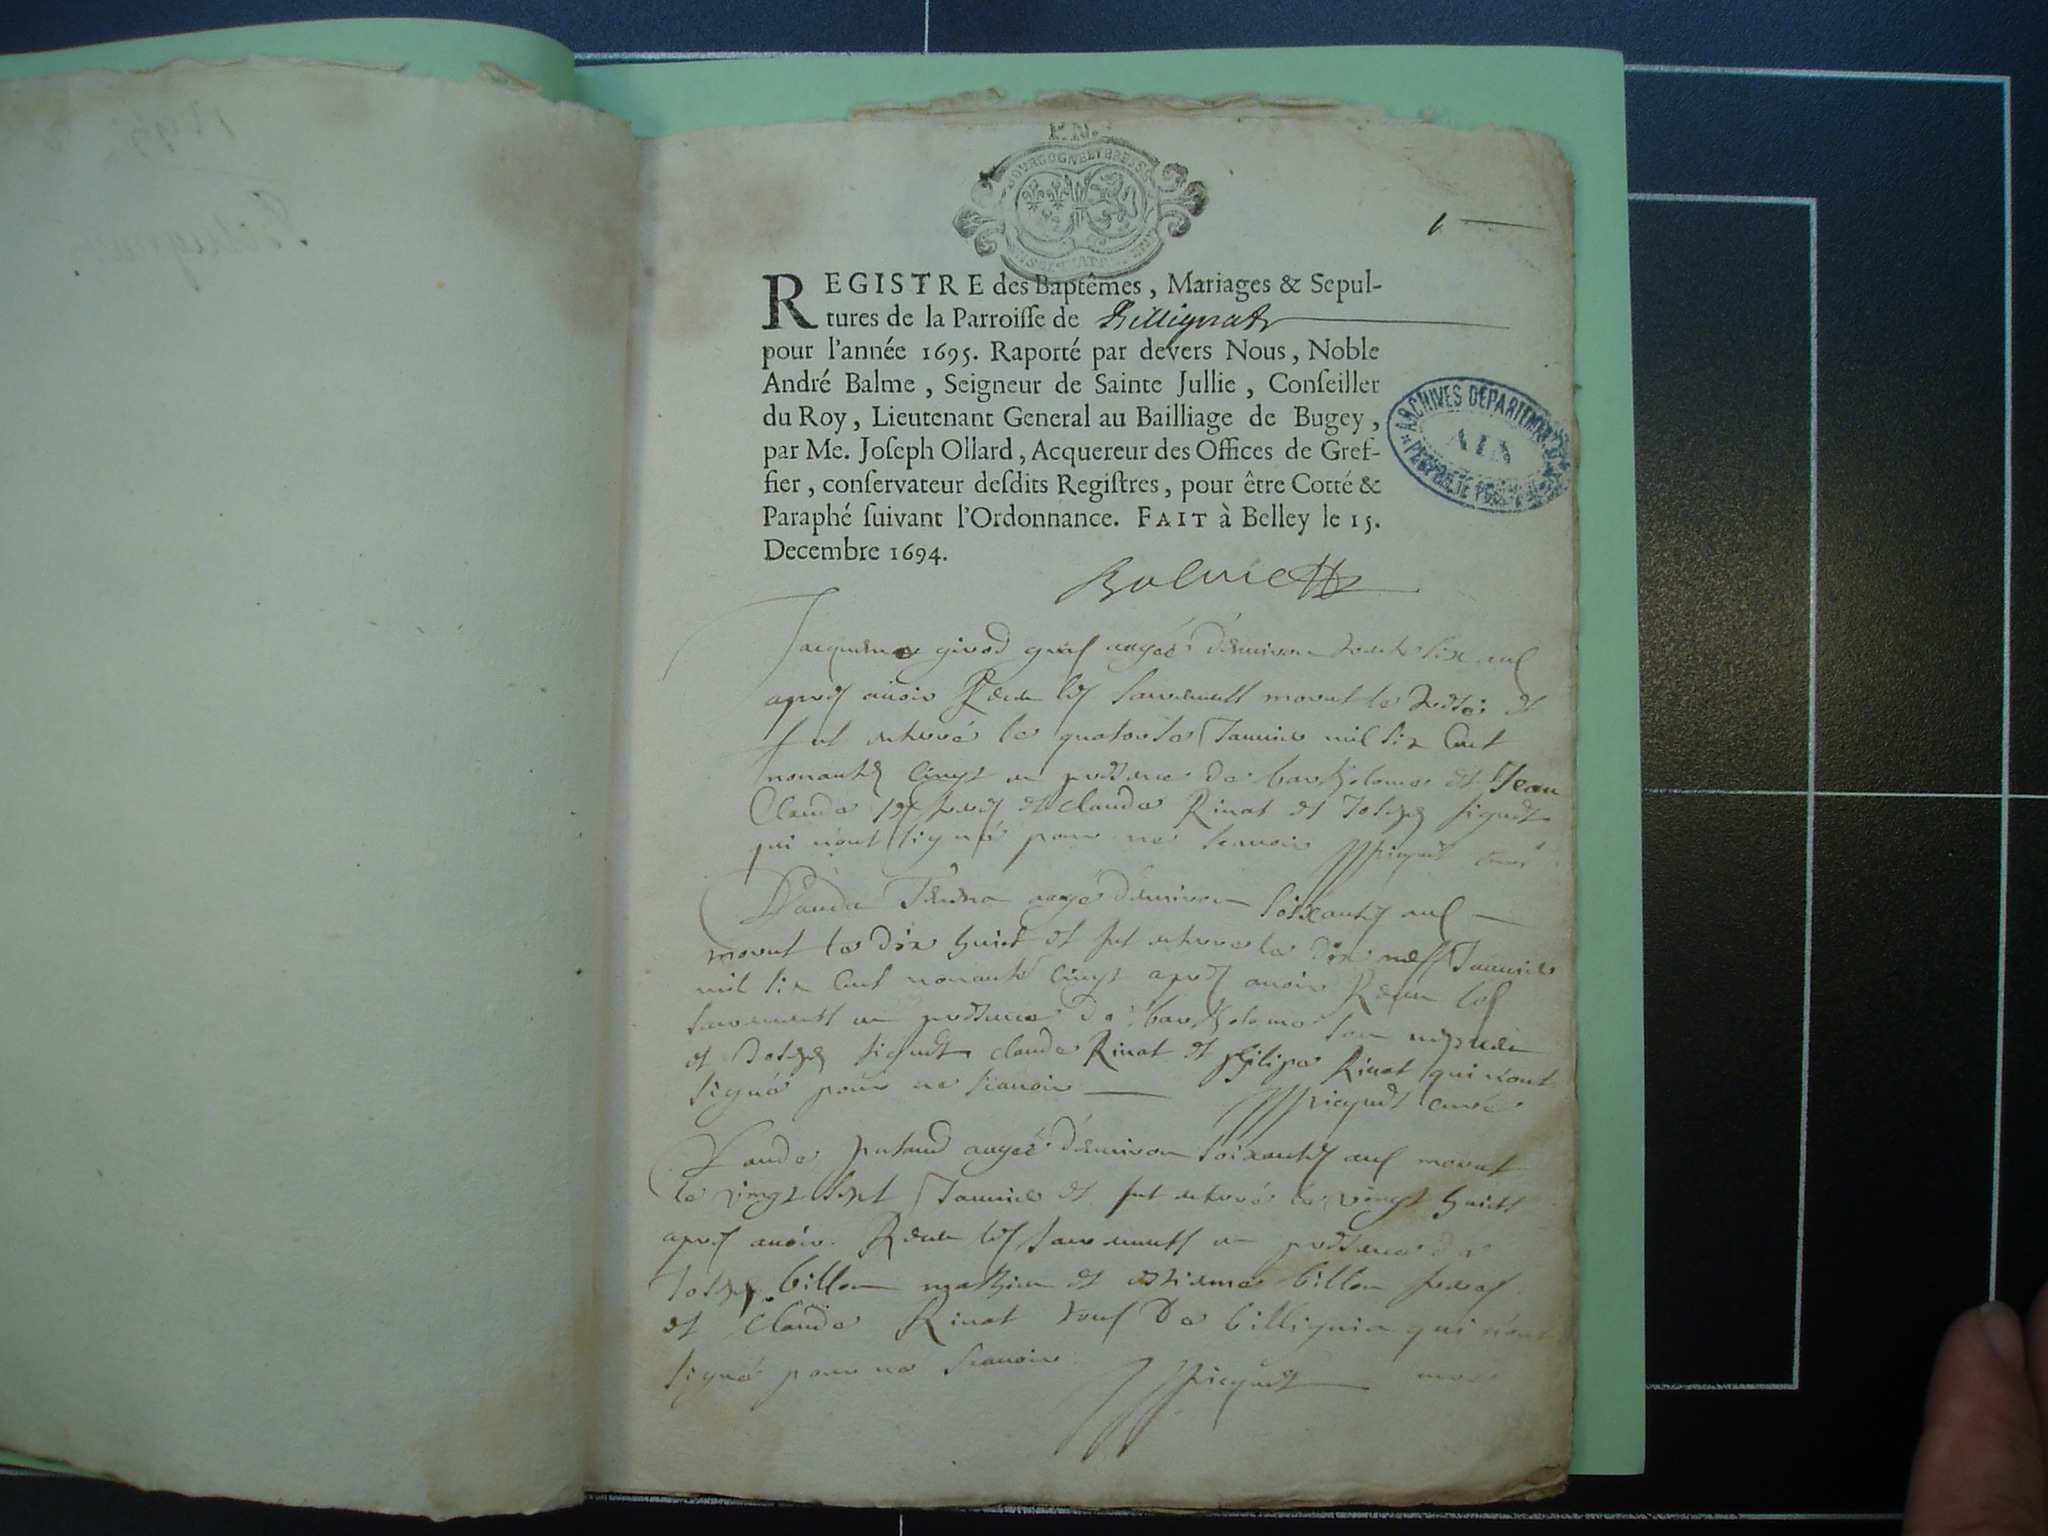 1695
Billignat
P.N.
BOURGOGNE ET BRESSE
1
REGISTRE des Baptêmes, Mariages & Sepul-
tures de la Parroisse de Billignat
pour l'année 1695. Raporté par devers Nous, Noble
André Balme, Seigneur de Sainte Jullie, Conseiller
du Roy, Lieutenant General au Bailliage de Bugey,
par Me. Joseph Ollard, Acquereur des Offices de Gref-
fier, conservateur desdits Registres, pour être Cotté &
Paraphé suivant l'Ordonnance. FAIT à Belley le 15.
Decembre 1694.
ARCHIVES DEPARTEMENTALES
AIN
PROPRIETE PUBLIQUE
Balme
Jacquema girod aagée d'environ trente six ans
apres avoir Receu les sacrements morut le et
fut enterré le quatorse Janvier mil six cent
nonante cinqt en presence de bartholome et Jean
Claude et claude Rinat et Joseph siguet
qui n'ont signé pour ne scavoir Picquet curé
Clauda aagé d'environ soixante ans
morut le dix huict et fut enterre le dix neuf Janvier
mil six cent nonante cinqt apres avoir Receu les
sacrements en presence de bartholome son nepveu
et Joseph siguet claude Rinat et philipe Rinat qui n'ont
signé pour ne scavoir Picquet curé
Claude putaud aagée d'environ soixante ans morut
le vingt sept Janvier et fut enterré le vingt huict
apres avoir Receu les sacrements en presence de
Joseph billon mathieu et estienne billon freres
et Claude Rinat tous de billignia qui n'ont
signé pour ne scavoir Picquet curé